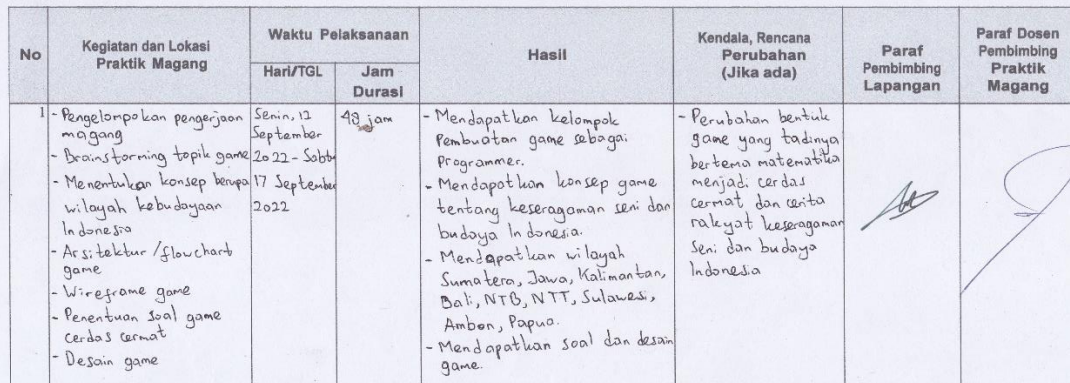 No
Kegiatan dan Lokasi
Praktik Magang
Waktu Pelaksanaan
Hari/TGL
Jam
Durasi
Hasil
Kendala, Rencana
Perubahan
(Jika ada)
Paraf
Pembimbing
Lapangan
Paraf Dosen
Pembimbing
Praktik
Magang
1
- Pengelompokan pengerjaan
magang
- Brainstorming topik game
- Menentukan konsep berupa
wilayah kebudayaan
Indonesia
- Arsitektur /flowchart
game
- Wireframe game
- Penentuan soal game
cerdas cermat
- Desain game
Senin, 12
September
2022 - Sabtu
17 September
2022
48 jam
- Mendapatkan kelompok
Pembuatan game sebagai
Programmer.
- Mendapatkan konsep game
tentang keseragaman seni dan
budaya Indonesia.
- Mendapatkan wilayah
Sumatera, Jawa, Kalimantan,
Bali, NTB, NTT, Sulawesi,
Ambon, Papua.
- Mendapatkan soal dan desain
game.
- Perubahan bentuk
game yang tadinya
bertema matematika
menjadi cerdas
cermat dan cerita
rakyat keseragaman
seni dan budaya
Indonesia